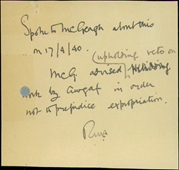 Spoke to McGeagh about this
on 17/4/40.
(upholding veto on
McG advised
work by Corp in order
not to prejudice expropriation.